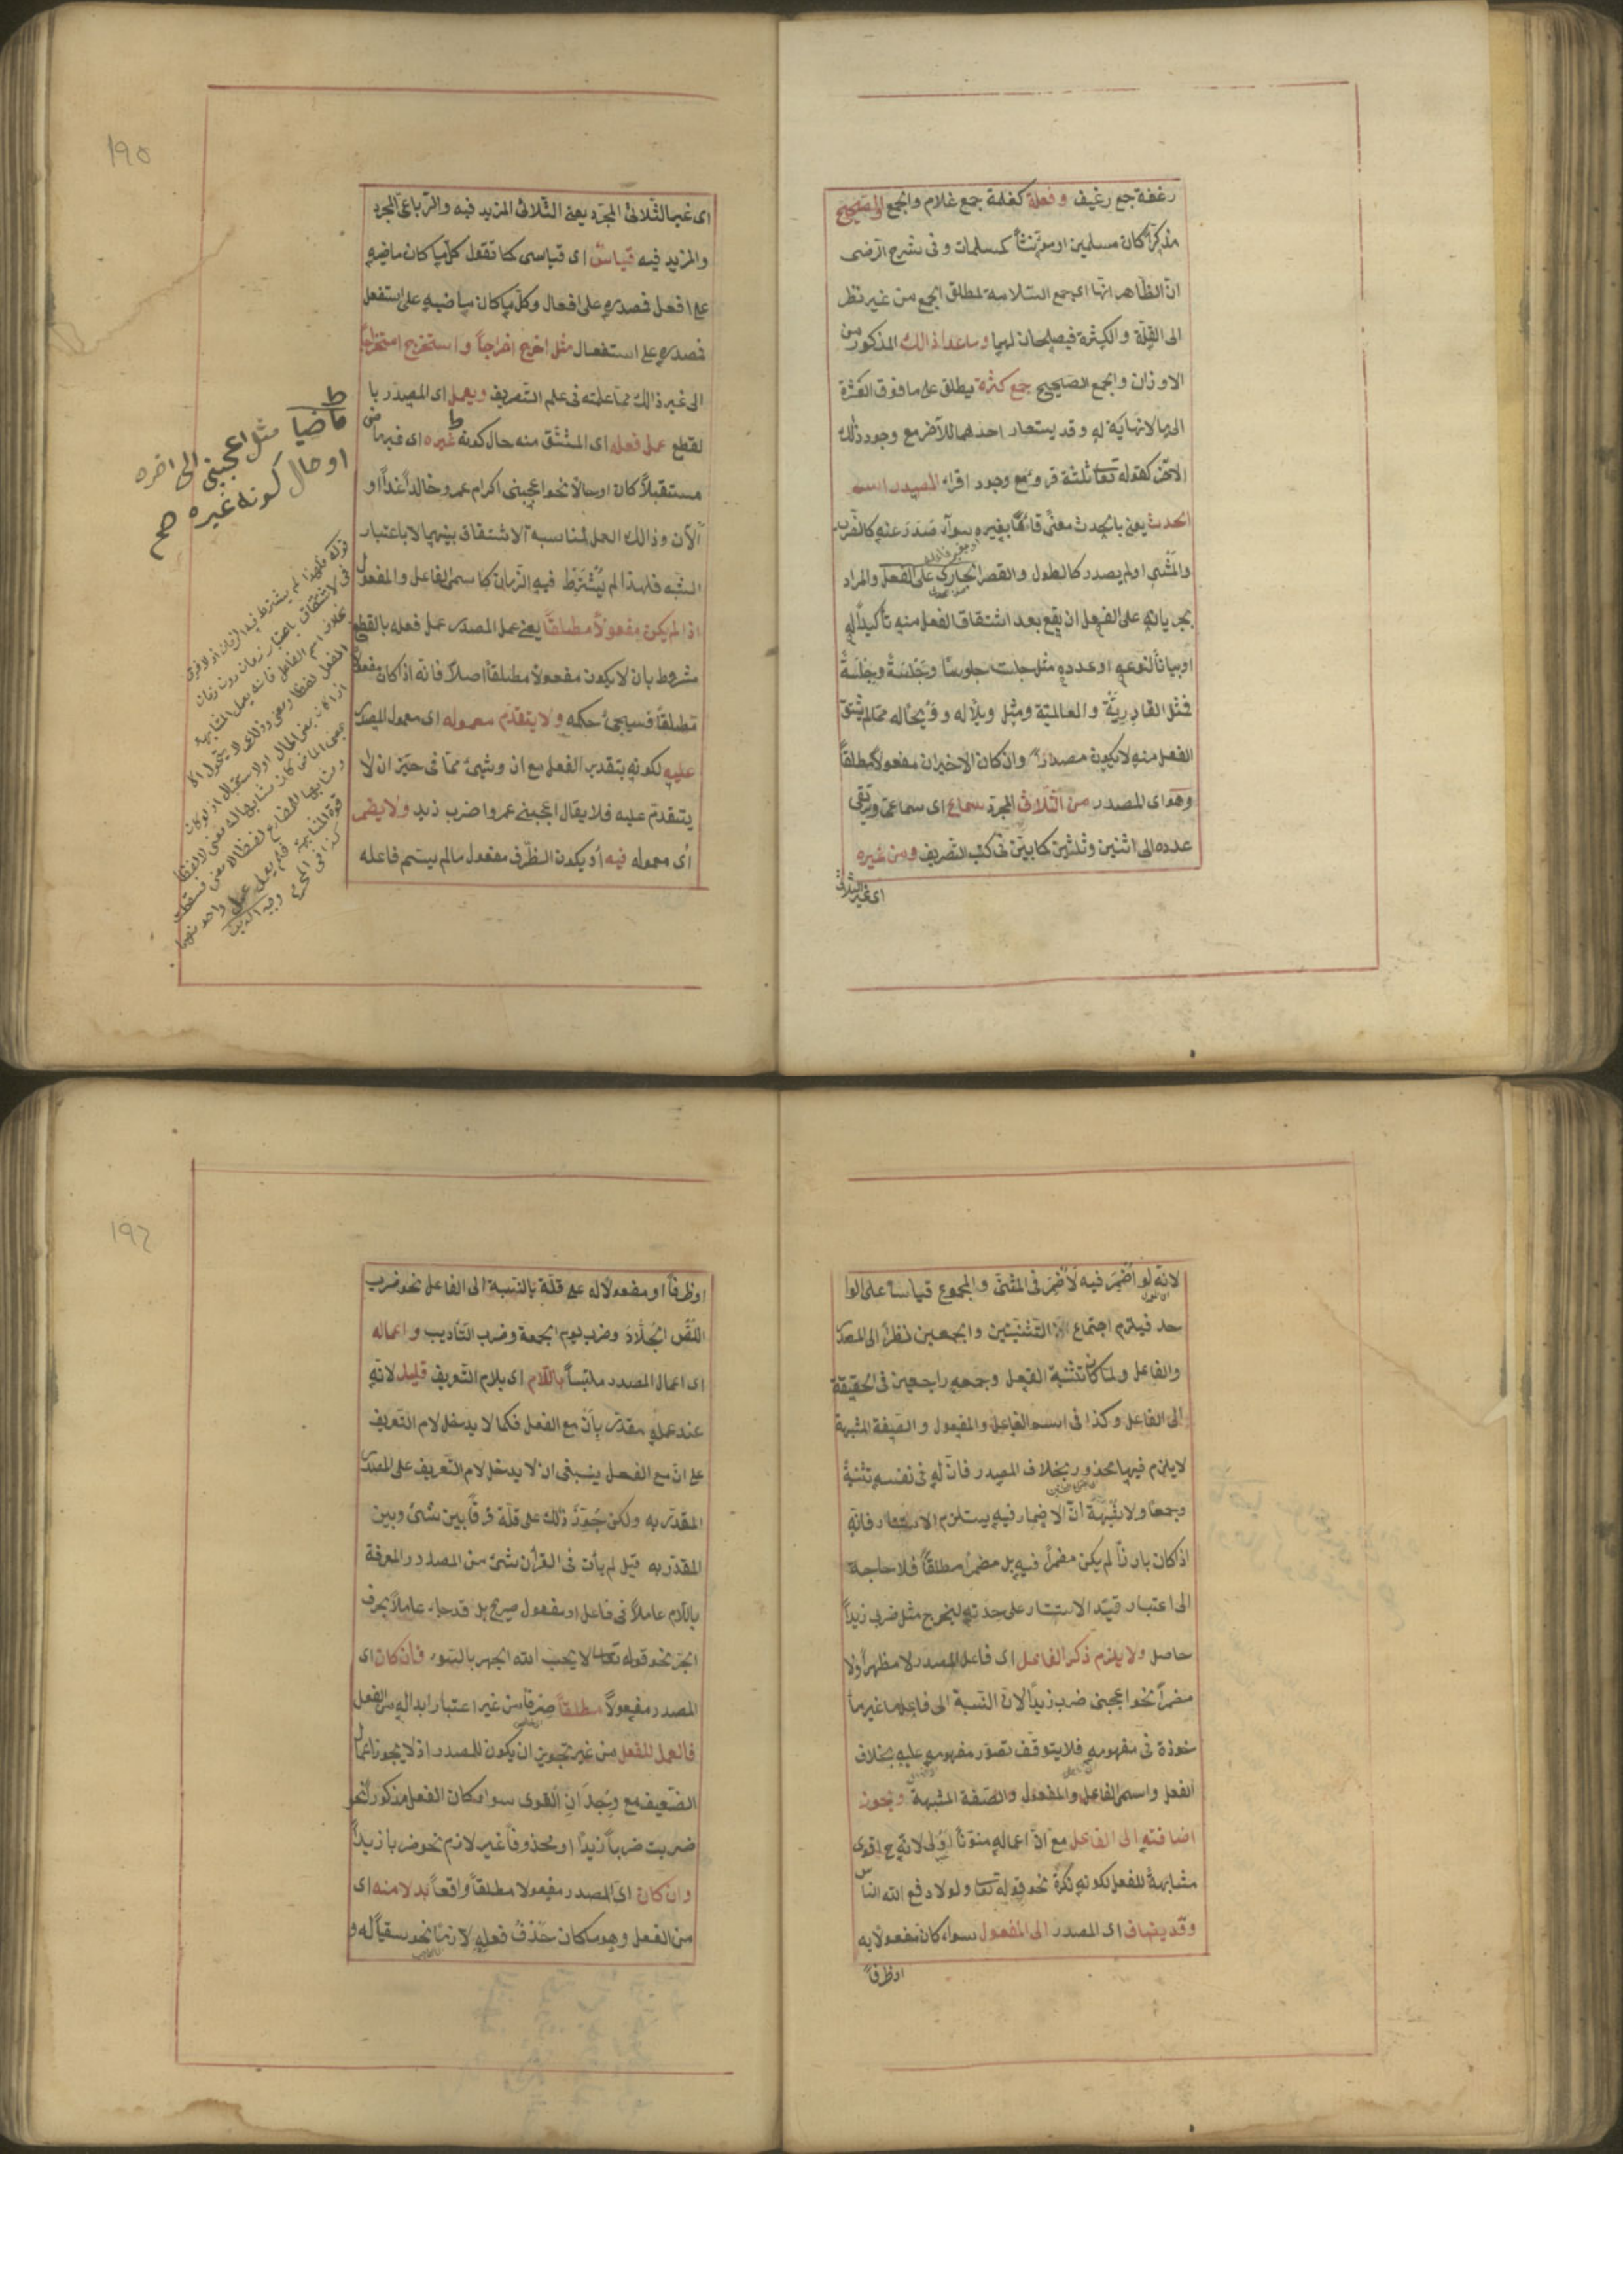 رغفة جمع رغيف وفعلة كغلمة جمع غلام والجمع الصحيح
مذكرا كان مسلمين او مؤنثا كمسلمات وفى شرح الرضى
ان الظاهر انها اى جمع السلامة لمطلق الجمع من غير نظر
الى القلة والكثرة فيصلحان لهما وما عدا ذالك المذكور من
الاوزان والجمع الصحيح جمع كثرة يطلق على ما فوق العشرة
الى ما لا نهاية له وقد يستعار احدهما للآخر مع وجود ذلك
الآخر كقوله تعا ثلثة قروء مع وجود اقراء المصدر اسم
الحدث يعنى بالحدث معنى قائما بغيره سوآء صدر عنه كالضرب
والمشى او لم يصدر كالطول والقصر الجارى على الفعل والمراد
بجريانه على الفعل ان يقع بعد اشتقاق الفعل منه تأكيدا له
او بيانا لنوعه او عدده مثل جلست جلوسا وجَلسة وجِلسة
فمثل القادرية والعالمية ومثل ويلا له وويحا له مما لم يشتق
الفعل منه لا يكون مصدرا وان كان الاخيران مفعولا مطلقا
وهو اى المصدر من الثلاثى المجرد سماع اى سماعى ويرتقى
عدده الى اثنين وثلثين كما بين فى كتب التصريف ومن غيره
اى غير الثلاثى
١٩٥
اى غير الثلاثى المجرد يعنى الثلاثى المزيد فيه والرباعى المجرد
والمزيد فيه قياس اى قياسى كما تقول كل ما كان ماضيه
على افعل فمصدره على افعال وكل ما كان ماضيه على استفعل
فمصدره على استفعال مثل اخرج اخراجا واستخرج استخراجا
الى غير ذالك مما علمته فى علم التصريف ويعمل اى المصدر با
لقطع عمل فعله اى المشتق منه حال كونه غيره اى غير ماض
مستقبلا كان او حالا نحو اعجبنى اكرام عمرو خالدا غدا او
الآن وذالك العمل لمناسبة الاشتقاق بينهما لا باعتبار
الشبه فلهذا لم يُشترط فيه الزمان كاسمى الفاعل والمفعول
اذا لم يكن مفعولا مطلقا يعنى عمل المصدر عمل فعله بالقطع
مشروط بان لا يكون مفعولا مطلقا اصلا فانه اذا كان مفعولا
مطلقا فسيجئ حكمه ولا يتقدم معموله اى معمول المصدر
عليه لكونه بتقدير الفعل مع ان وشئ مما فى حيز ان لا
يتقدم عليه فلا يقال اعجبنى عمروا ضرب زيد ولا يضمر
اى معموله فيه او يكون الظرف مفعول ما لم يسم فاعله
ماضيا مثل اعجبنى الى اخره
او حال كونه غيره صح
قوله فلهذا لم يشترط فيه الزمان اذ لا فرق
فى الاشتقاق باعتبار زمان دون زمان
بخلاف اسم الفاعل فانه يعمل لمشابهة
الفعل لفظا ومعنى
لانه لو اُضمر فيه لاُضمر فى المثنى والمجموع قياسا على الوا
حد فيلزم اجتماع التثنيتين والجمعين نظرا الى المصدر
والفاعل ولما كان تثنية الفعل وجمعه راجعين فى الحقيقة
الى الفاعل وكذا فى اسم الفاعل والمفعول والصفة المشبهة
لا يلزم فيها محذور بخلاف المصدر فان له فى نفسه تثنية
وجمعا ولا شبهة ان الاضمار فيه يستلزم الاستتار فانه
اذا كان بارزا لم يكن مضمرا فيه بل مضمرا مطلقا فلا حاجة
الى اعتبار قيد الاستتار على حدته ليخرج مثل ضربى زيدا
حاصل ولا يلزم ذكر الفاعل اى فاعل المصدر لا مظهرا ولا
مضمرا نحو اعجبنى ضرب زيدا لان النسبة الى فاعل ما غير مأ
خوذة فى مفهومه فلا يتوقف تصور مفهومه عليه بخلاف
الفعل واسمى الفاعل والمفعول والصفة المشبهة ويجوز
اضافته الى الفاعل مع ان اعماله منونا اولى لانه ح اقوى
مشابهة للفعل لكونه نكرة نحو قوله تعا ولولا دفع الله الناس
وقد يضاف اى المصدر الى المفعول سواء كان مفعولا به
او ظرفا
١٩٦
او ظرفا او مفعولا له على قلة بالنسبة الى الفاعل نحو ضرب
اللص الجلاد وضرب يوم الجمعة وضرب التأديب واعماله
اى اعمال المصدر ملتبسا باللام اى بلام التعريف قليل لانه
عند عمله مقدر بأن مع الفعل فكما لا يدخل لام التعريف
على ان مع الفعل ينبغى ان لا يدخل لام التعريف على المصدر
المقدر به ولكن جُوّز ذلك على قلة فرقا بين شئ وبين
المقدر به قيل لم يأت فى القرآن شئ من المصدر المعرفة
باللام عاملا فى فاعل او مفعول صريح بل قد جاء عاملا بحرف
الجر نحو قوله تعا لا يحب الله الجهر بالسوء فان كان اى
المصدر مفعولا مطلقا صرفا من غير اعتبار ابداله من الفعل
فالعمل للفعل من غير تجويز ان يكون للمصدر اذ لا يجوز اعمال
الضعيف مع وجدان القوى سواء كان الفعل مذكورا نحو
ضربت ضربا زيدا او محذوفا غير لازم نحو ضربا زيدا
وان كان اى المصدر مفعولا مطلقا واقعا بدلا منه اى
من الفعل وهو ما كان حذف فعله لازما نحو سقيا له و